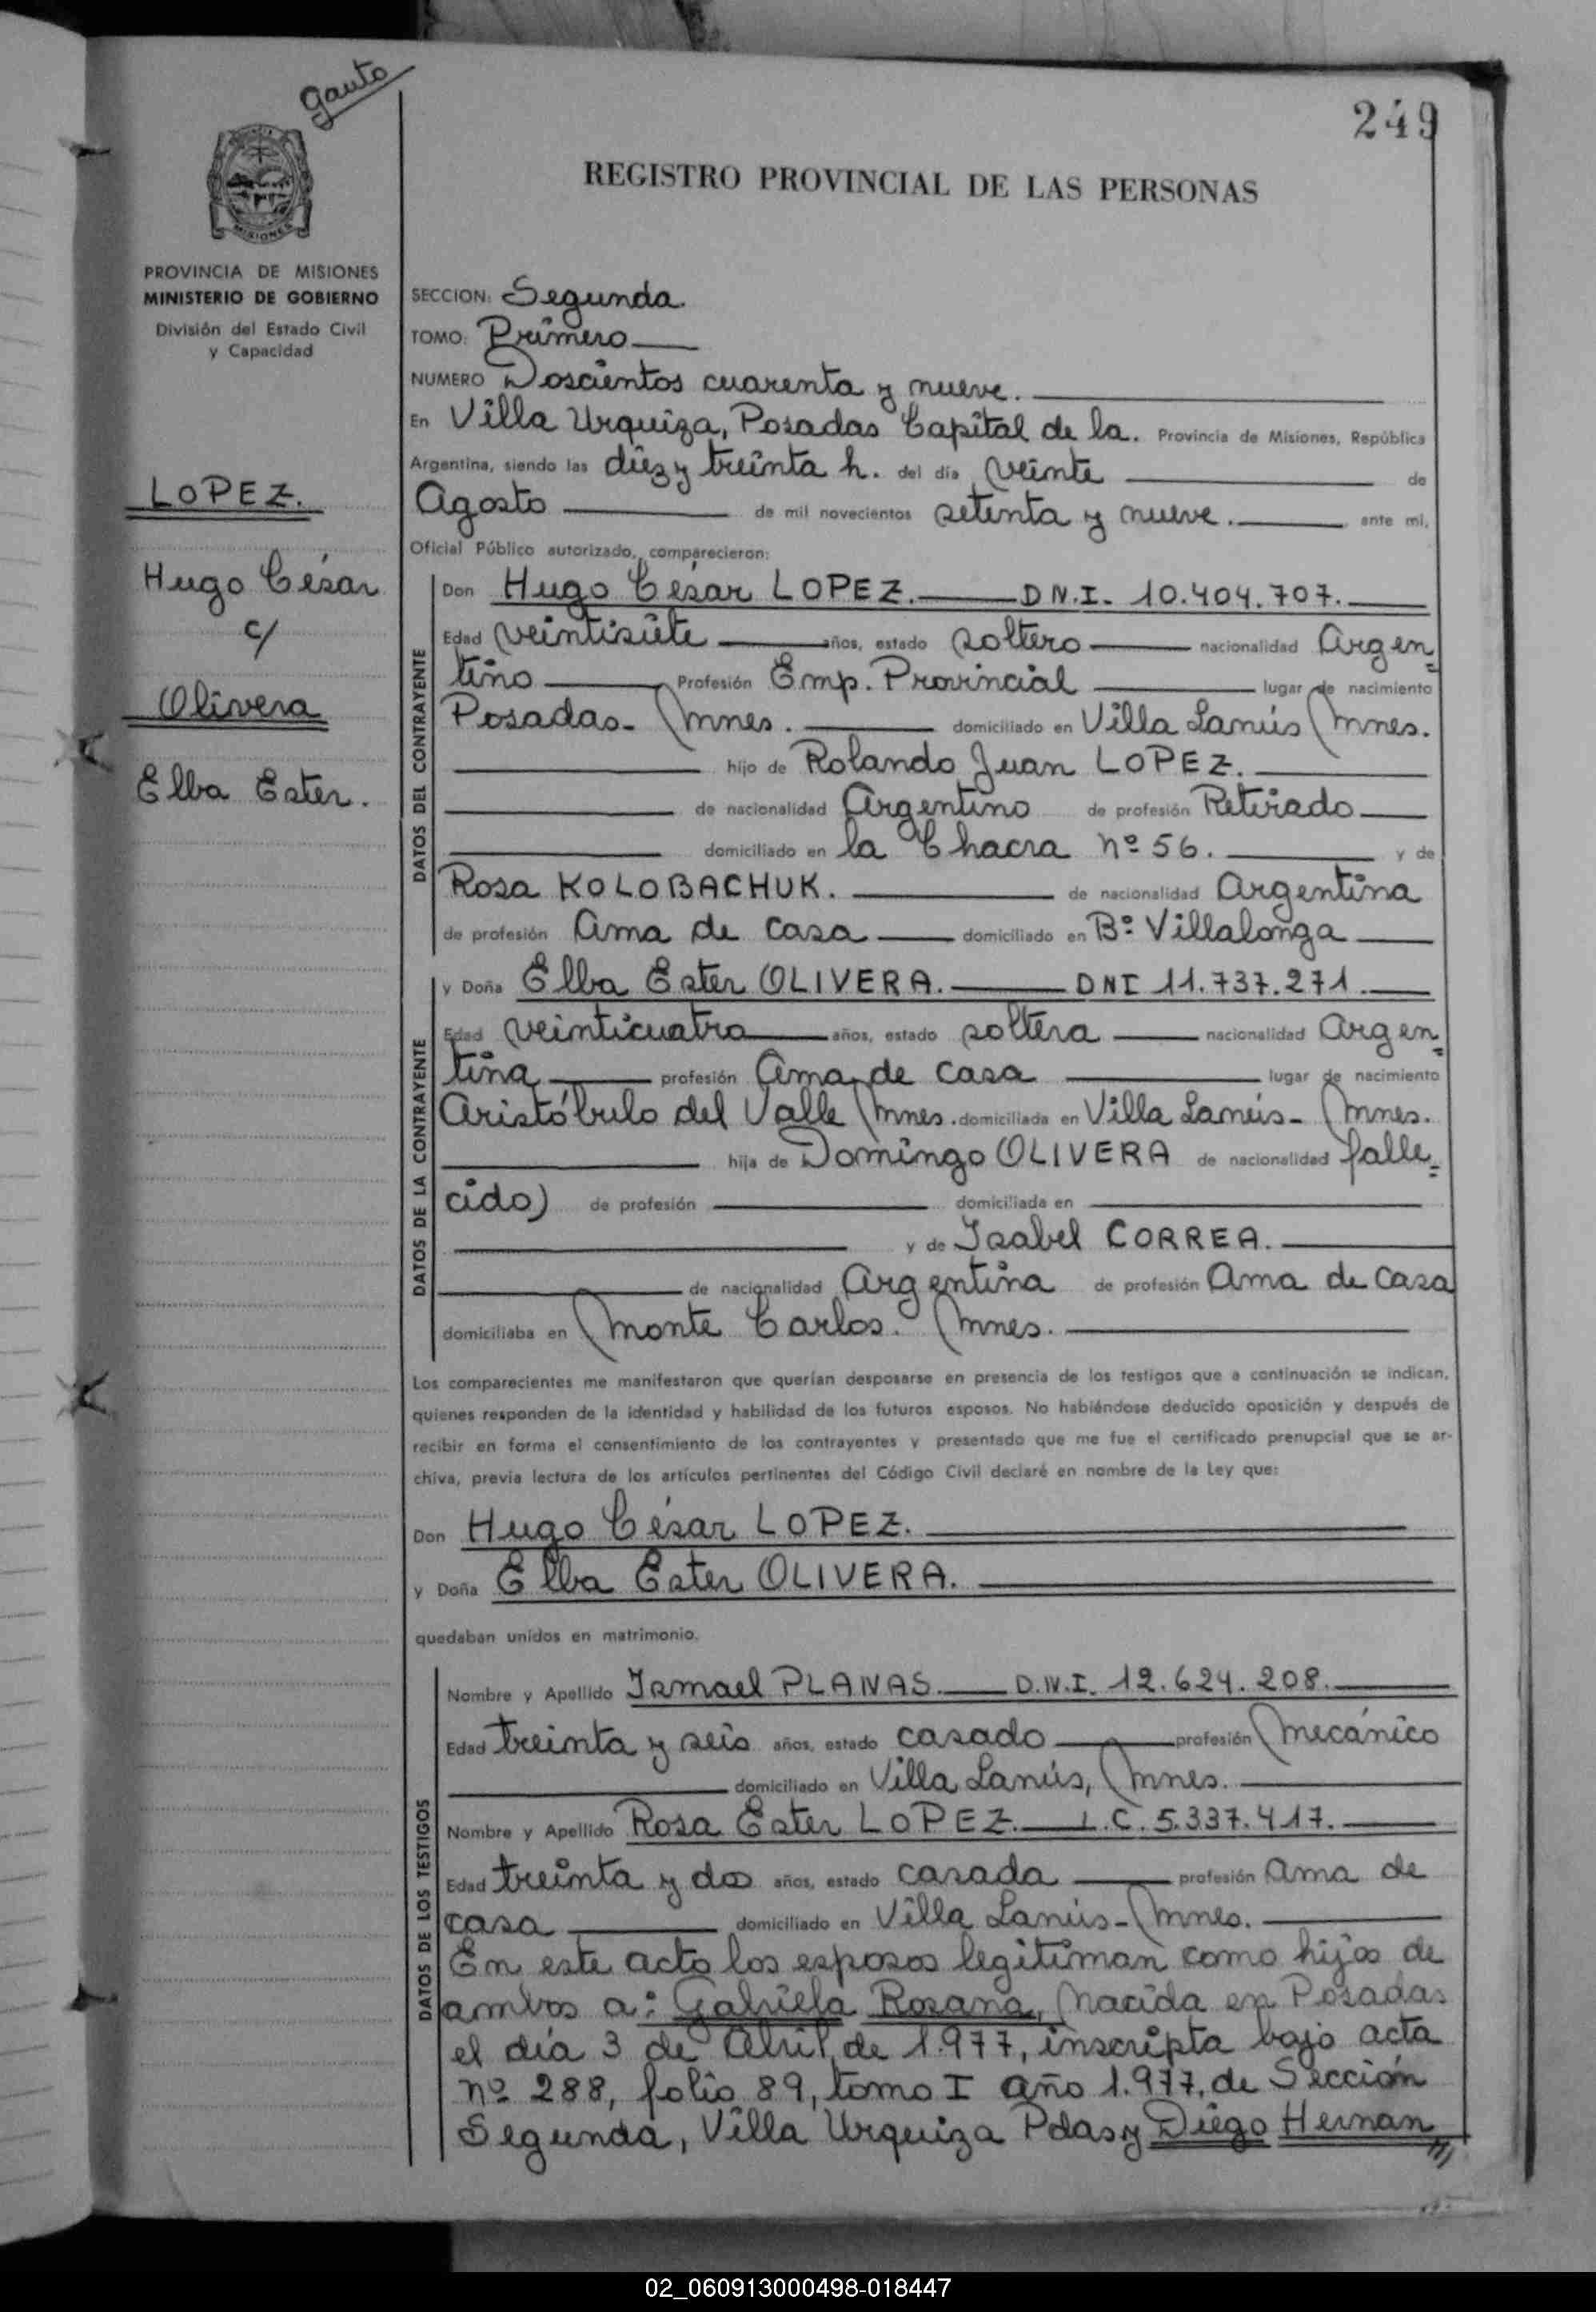 Gauto
249
REGISTRO PROVINCIAL DE LAS PERSONAS
MISIONES
PROVINCIA DE MISIONES
MINISTERIO DE GOBIERNO
División del Estado Civil
y Capacidad
LOPEZ.
Hugo César
c/
Olivera
Elba Ester.
SECCION: Segunda.
TOMO: Primero
NUMERO Doscientos cuarenta y nueve.
En Villa Urquiza, Posadas Capital de la. Provincia de Misiones, República
Argentina, siendo las diez y treinta h. del día veinte de
Agosto de mil novecientos setenta y nueve. ante mi,
Oficial Público autorizado, comparecieron:
DATOS DEL CONTRAYENTE
Don Hugo César LOPEZ. D N.I. 10.404.707.
Edad veintisiete años, estado soltero nacionalidad Argen=
tino Profesión Emp. Provincial lugar de nacimiento
Posadas- Mnes. domiciliado en Villa Lanús Mnes.
hijo de Rolando Juan LOPEZ.
de nacionalidad Argentino de profesión Retirado
domiciliado en la Chacra nº 56. y de
Rosa KOLOBACHUK. de nacionalidad Argentina
de profesión Ama de casa domiciliado en Bº Villalonga
DATOS DE LA CONTRAYENTE
y Doña Elba Ester OLIVERA. DNI 11.737.271
Edad veinticuatro años, estado soltera nacionalidad Argen=
tina profesión Ama de casa lugar de nacimiento
Aristóbulo del Valle Mnes. domiciliada en Villa Lanús- Mnes.
hija de Domingo OLIVERA de nacionalidad falle=
cido) de profesión domiciliada en
y de Isabel CORREA.
de nacionalidad Argentina de profesión Ama de casa
domiciliaba en Monte Carlos. Mnes.
Los comparecientes me manifestaron que querían desposarse en presencia de los testigos que a continuación se indican,
quienes responden de la identidad y habilidad de los futuros esposos. No habiéndose deducido oposición y después de
recibir en forma el consentimiento de los contrayentes y presentado que me fue el certificado prenupcial que se ar-
chiva, previa lectura de los artículos pertinentes del Código Civil declaré en nombre de la Ley que:
Don Hugo César LOPEZ.
y Doña Elba Ester OLIVERA.
quedaban unidos en matrimonio.
DATOS DE LOS TESTIGOS
Nombre y Apellido Ismael PLANAS. D.N.I. 12.624.208.
Edad treinta y seis años, estado casado profesión Mecánico
domiciliado en Villa Lanús, Mnes.
Nombre y Apellido Rosa Ester LOPEZ. L.C. 5.337.417.
Edad treinta y dos años, estado casada profesión Ama de
casa domiciliado en Villa Lanús- Mnes.
En este acto los esposos legitiman como hijos de
ambos a: Gabriela Rosana, Nacida en Posadas
el día 3 de Abril de 1.977, inscripta bajo acta
nº 288, folio 89, tomo I año 1.977, de Sección
Segunda, Villa Urquiza Pdas y Diego Hernan
02_060913000498-018447